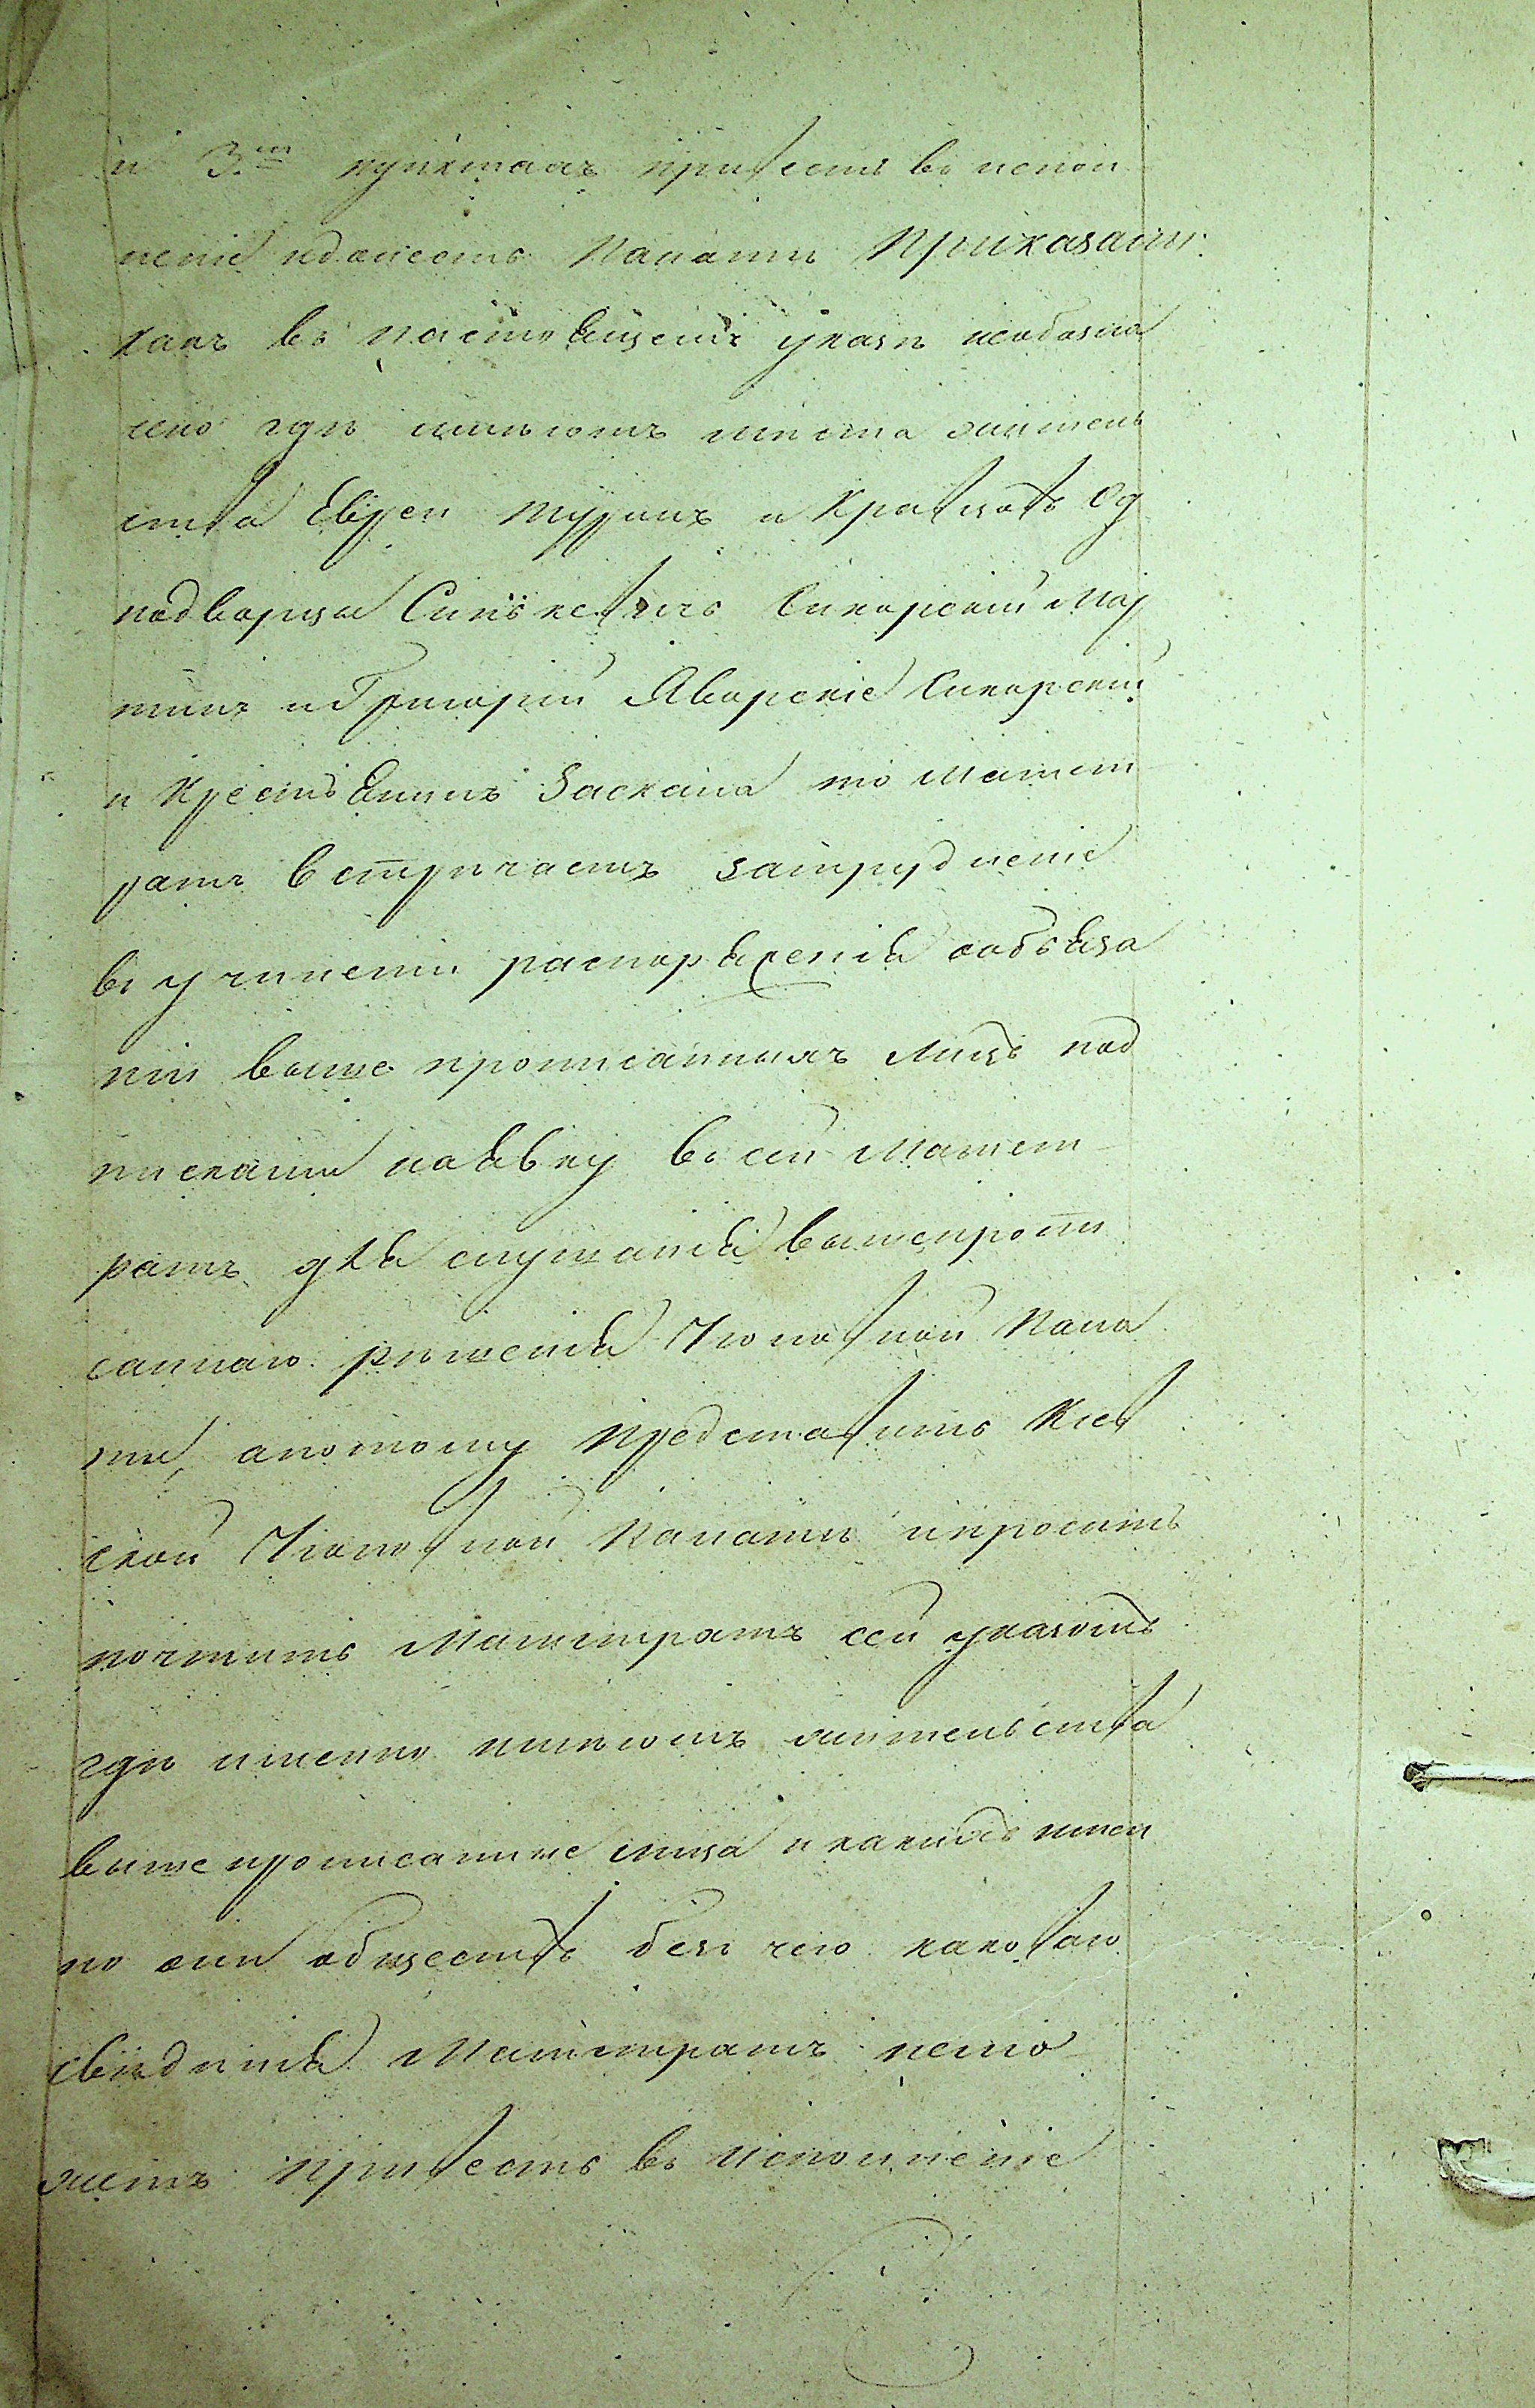 и 3.м пунктахъ привесть въ испол
неніе и донесть Палатѣ Приказали:
какъ въ настоящемъ указѣ необозна
чено гдѣ имѣютъ мѣста житель
ства Евреи и Кравцовъ Од
нодворцы Сикорскій Мар
тинъ и Григорій Яворскіе Сикорскій
и Крестьянинъ то Магист
ратъ встрѣчаетъ затрудненіе
въ учиненіи распоряженія обяза
ніи выше прописанныхъ лицъ под
писками наявку въ сей Магист
ратъ для слушанія вышепропи
саннаго рѣшенія Уголовной Пала
ты, апотому Представить Кіев
ской Уголовной Палатѣ ипросить
почтить Магистратъ сей указомъ
гдѣ именно имѣютъ жительства
выше прописанные лица и какихъ имен
но они обществъ безъ чего каковаго
свѣдѣнія Магистратъ немо
жетъ Привесть въ Исполненіе